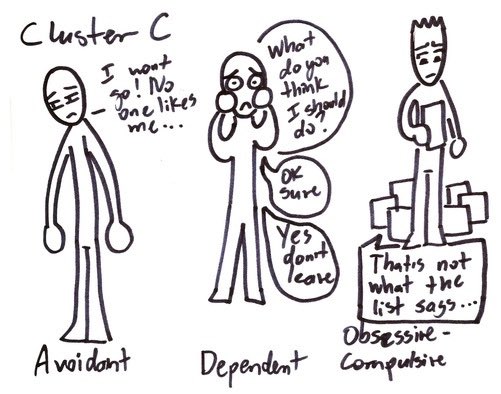 Cluster C
I wont
go! No
one likes
me...
What
do you
think
I should
do?
OK
sure
Yes
don't
leave
That's not
what the
list says...
Avoidant
Dependent
Obsessive-
Compulsive